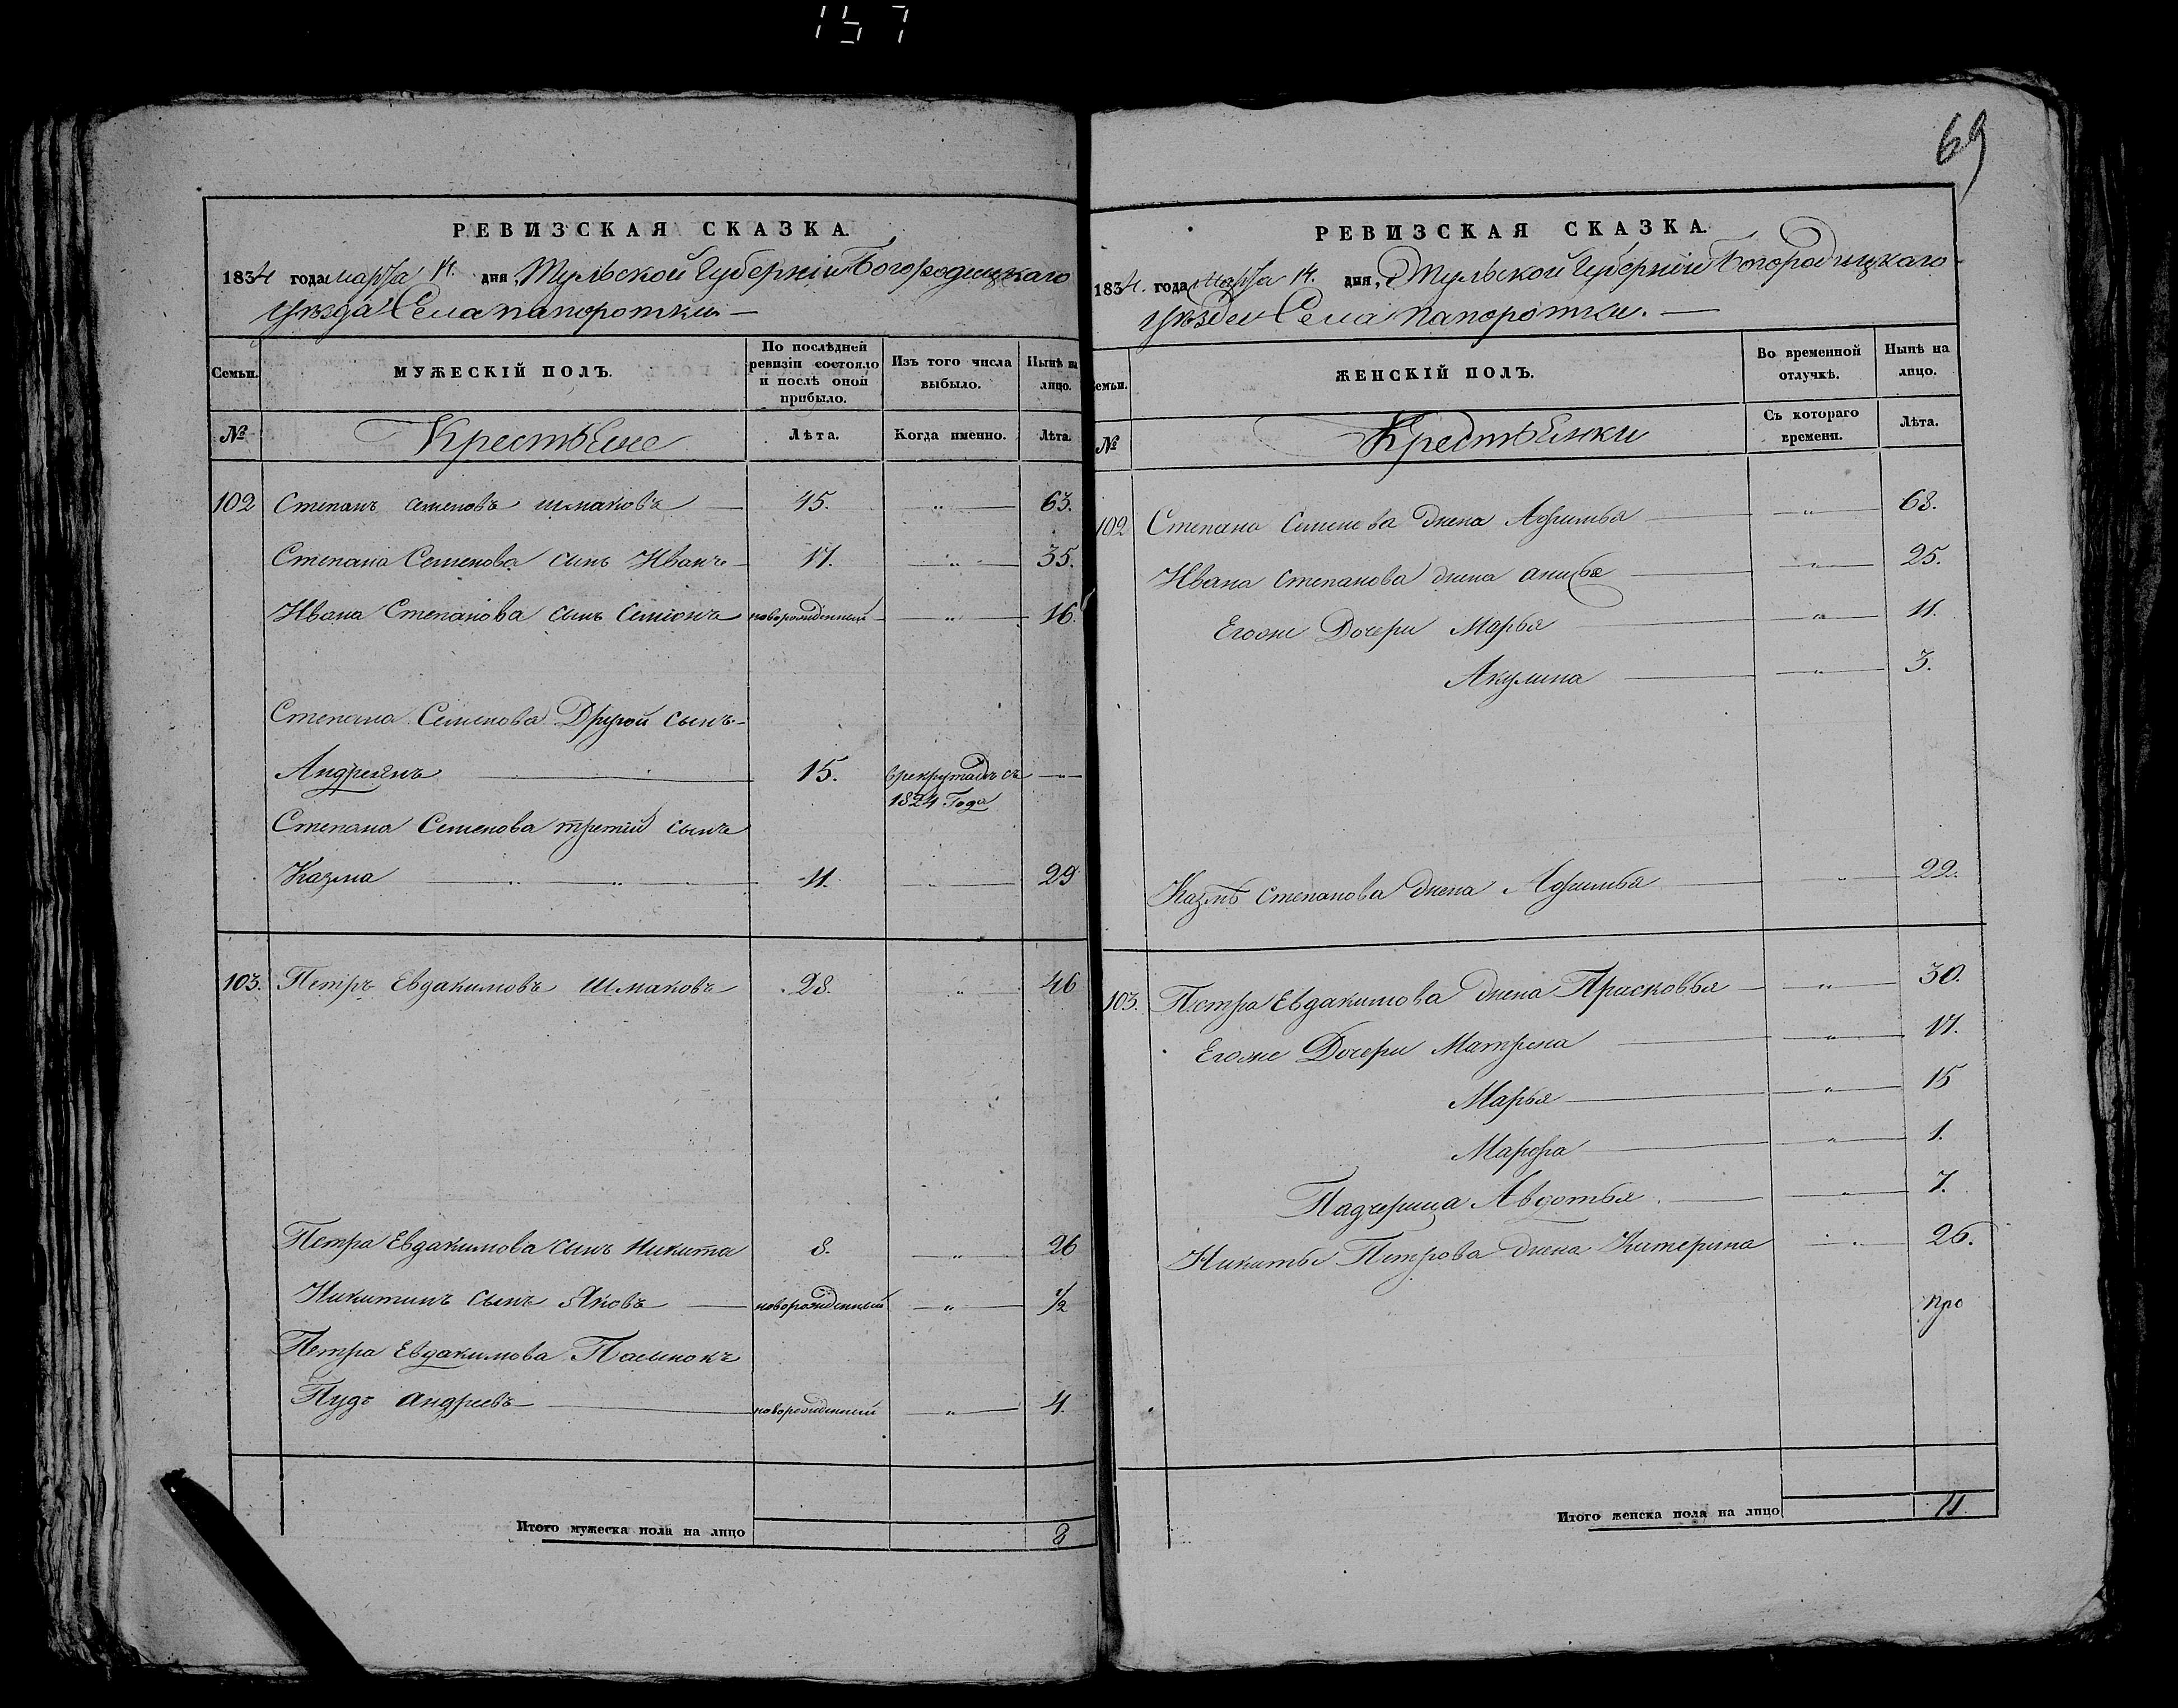 157
69
РЕВИЗСКАЯ СКАЗКА.
1834 года марта 14. дня, Тульской Губерніи Богородицкаго
уѣзда Села папоротки —
Семьи.
МУЖЕСКІЙ ПОЛЪ.
По послѣдней ревизіи состояло и послѣ оной прибыло.
Изъ того числа выбыло.
Нынѣ на лицо.
№
Крестьяне
Лѣта.
Когда именно.
Лѣта.
102 Степанъ семеновъ шмаковъ — 45. — " — 63.
Степана Семенова сынъ Иванъ — 17. — " — 35.
Ивана Степанова сынъ Семіонъ новорожденный — " — 16.
Степана Семенова Другой сынъ —
Андреянъ — 15. врекрутахъ съ — " —
1824 Года
Степана Семенова третій сынъ
Казма — " — " — 11. — " — 29
103. Петръ Евдакимовъ Шмаковъ 28. " — 46
Петра Евдакимова сынъ Никита 8. — " — 26
Никитинъ сынъ Яковъ — новорожденный — " — 1/2
Петра Евдакимова Пасынокъ
Пудъ андреевъ — новорожденный — " — 4.
Итого мужеска пола на лицо 8
РЕВИЗСКАЯ СКАЗКА.
1834. года марта 14. дня, Тульской Губерніи Богородицкаго
уѣзда Села папоротки. —
емьи.
ЖЕНСКІЙ ПОЛЪ.
Во временной отлучкѣ.
Нынѣ на лицо.
№
Крестьянки
Съ котораго времени.
Лѣта.
102 Степана Семенова жена Афимья — " — 68.
Ивана степанова жена анисья — " — 25.
Егоже Дочери Марья — " — 11.
Акулина — " — 3.
Казмы степанова жена Афимья — " — 22.
103. Петра Евдакимова жена Прасковья — " — 30.
Егоже Дочери Матрена — " — 17.
Марья — " — 15
Марфа — " — 1.
Падчерица Авдотья — " — 7.
Никиты Петрова жена Катерина — " — 26.
про
Итого женска пола на лицо 11.